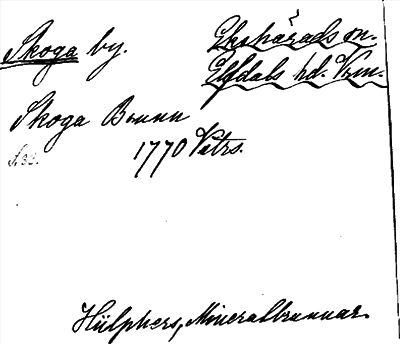 Skoga by.
Ekshärads sn.
Elfdals hd. Vrm.
Skoga Brunn
1770 Vatrs.
S. 33.
Hülphers, Mineralbrunnar